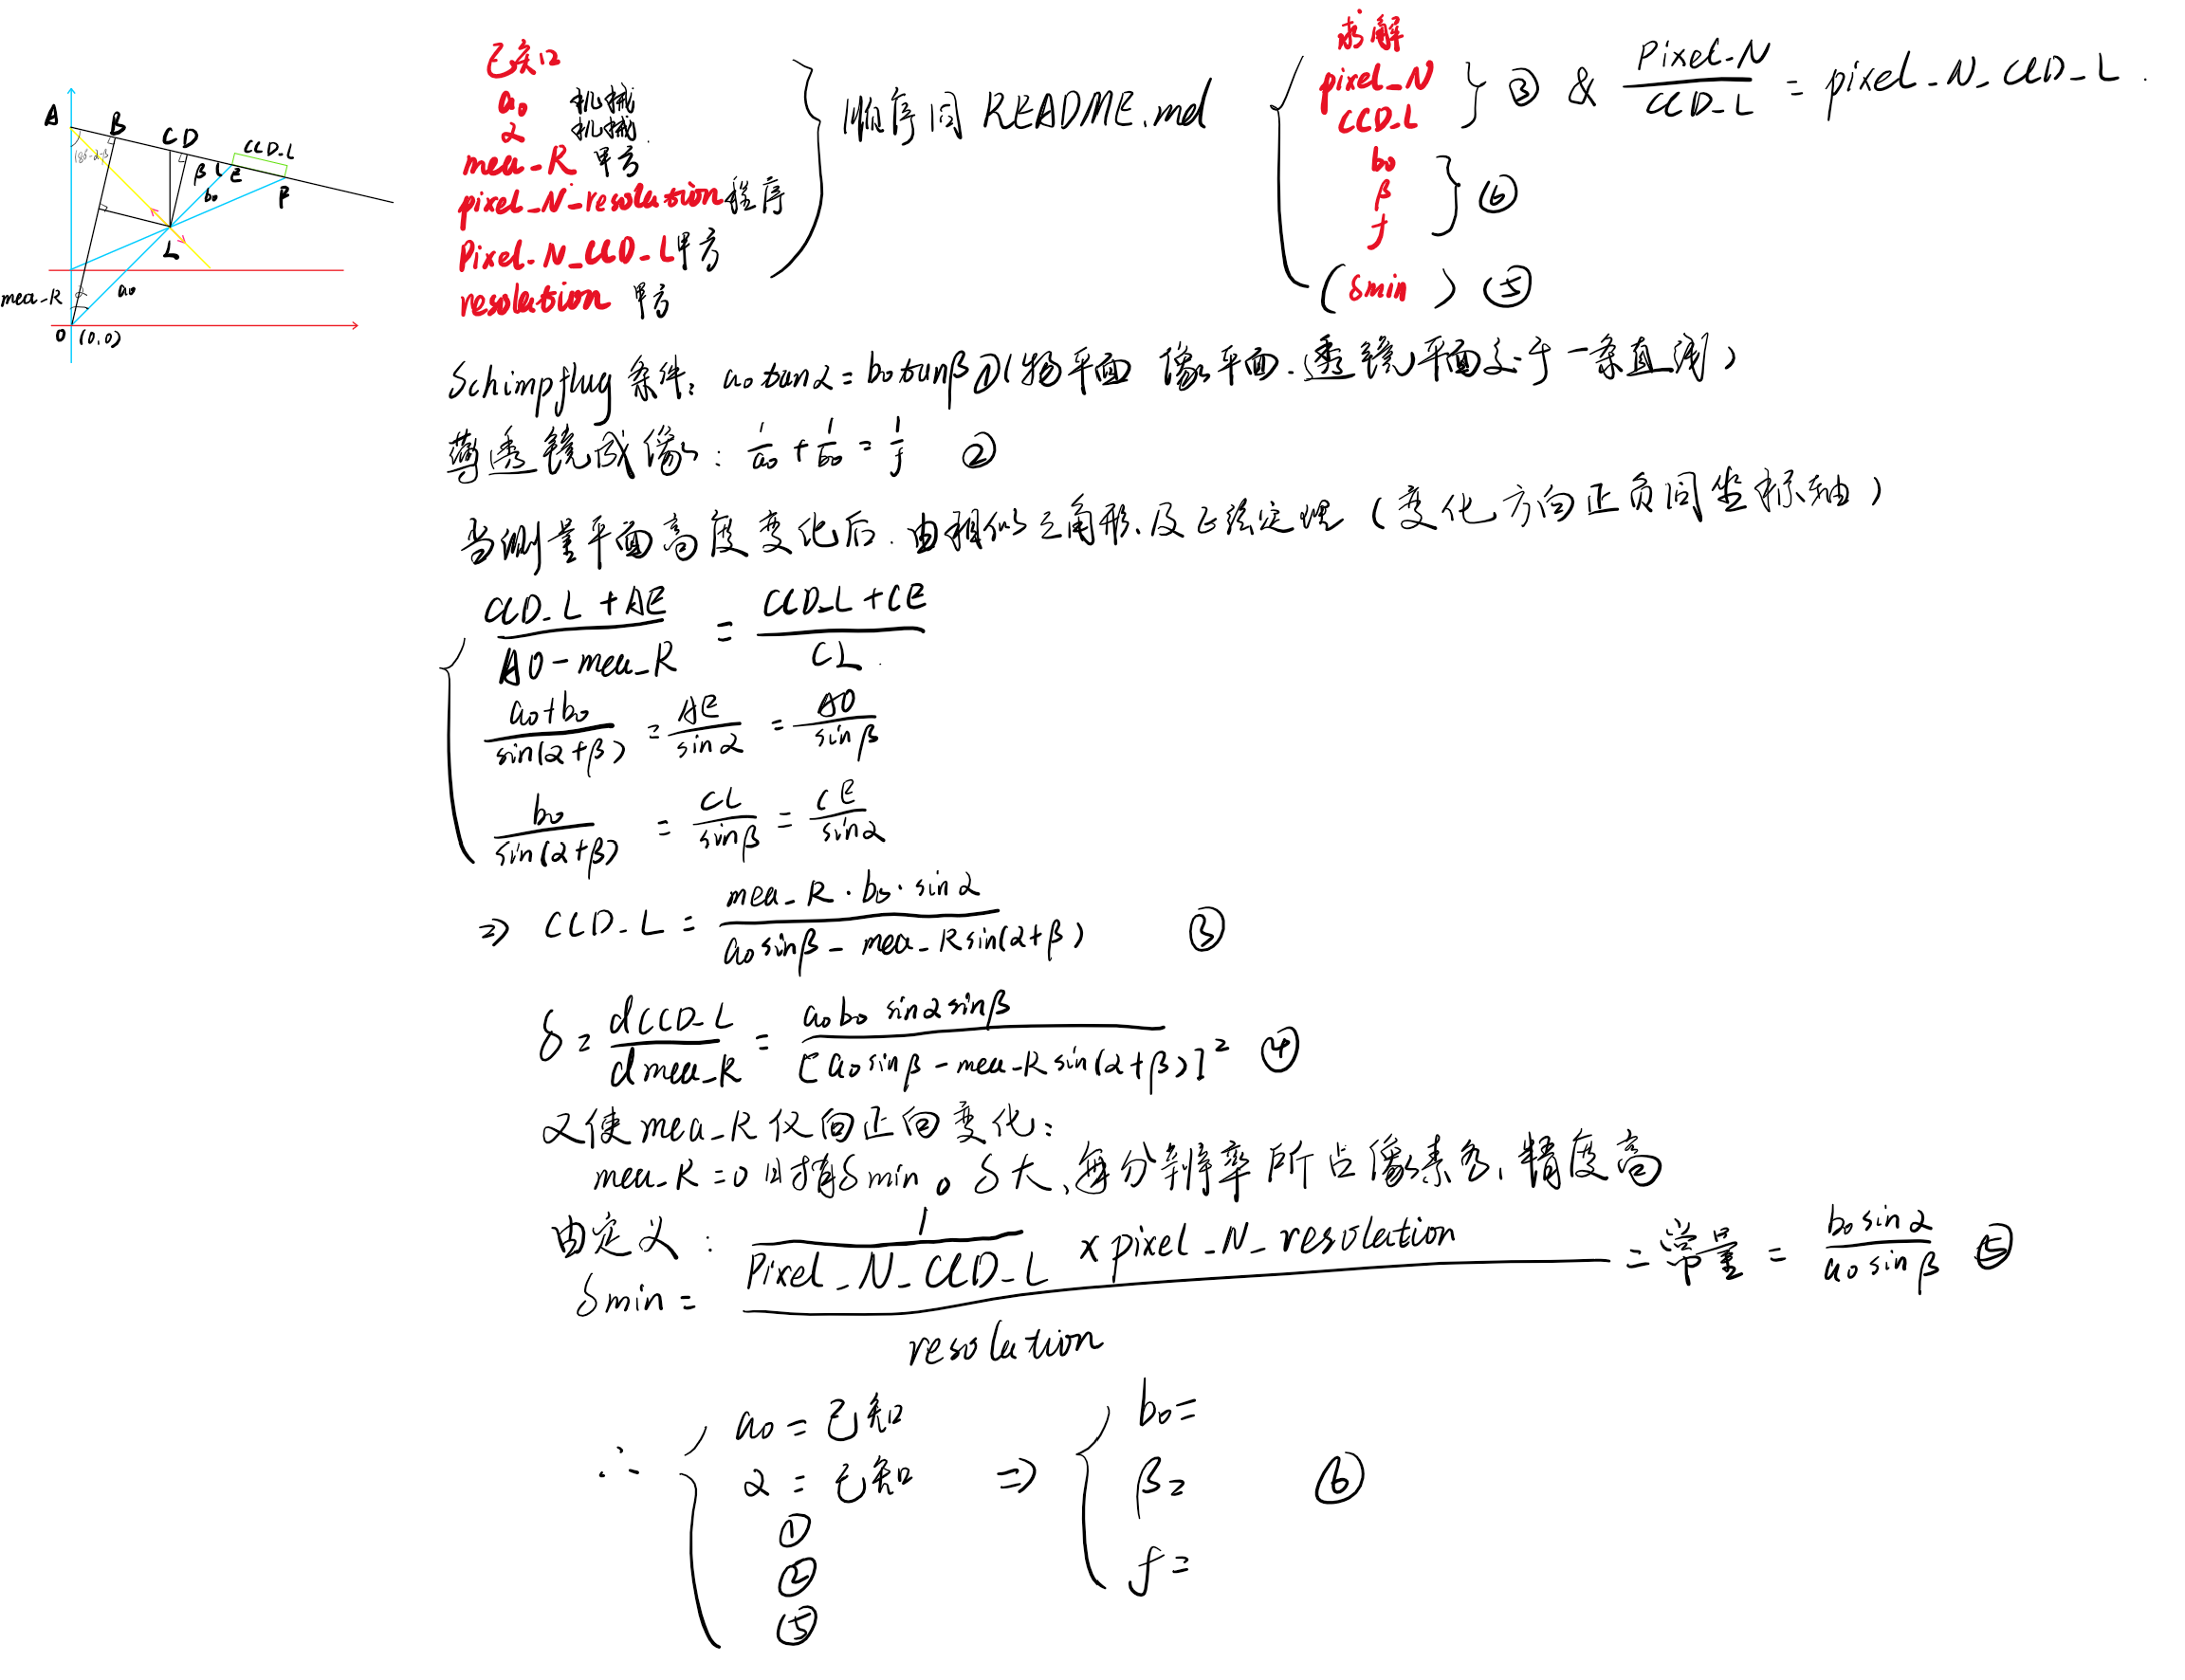 A
B
C D
CCD-L
180-α-β
β
E
b₀
F
L
mea-R
α
a₀
O (0,0)
已知
a₀ 机械
α 机械
mea-R 甲方
pixel-N-resolution 程序
Pixel-N-CCD-L 甲方
resolution 甲方
顺序同 README.md
求解
pixel-N
CCD-L
③ & Pixel-N / CCD-L = pixel-N-CCD-L.
b₀
β
f
⑥
(δmin) ⑤
Schimpflug 条件: a₀tanα = b₀tanβ ① (物平面 像平面.透镜平面交于一条直线)
薄透镜成像: 1/a₀ + 1/b₀ = 1/f ②
当测量平面高度变化后.由相似三角形.及正弦定理 (变化方向正负同坐标轴)
(CCD-L + AE) / (AO - mea-R) = (CCD-L + CE) / CL
(a₀+b₀) / sin(α+β) = AE / sinα = AO / sinβ
b₀ / sin(α+β) = CL / sinβ = CE / sinα
⇒ CCD-L = (mea-R · b₀ · sinα) / (a₀sinβ - mea-Rsin(α+β)) ③
δ = dCCD-L / dmea-R = a₀b₀ sinαsinβ / [a₀sinβ - mea-Rsin(α+β)]² ④
又使 mea-R 仅向正向变化:
mea-R = 0 时有δmin。δ大,每分辨率所占像素多,精度高
由定义:
δmin = (1 / Pixel-N-CCD-L × pixel-N-resolution) / resolution = 常量 = b₀sinα / a₀sinβ ⑤
∴ a₀ = 已知
α = 已知
①
②
⑤
⇒
b₀=
β=
f=
⑥